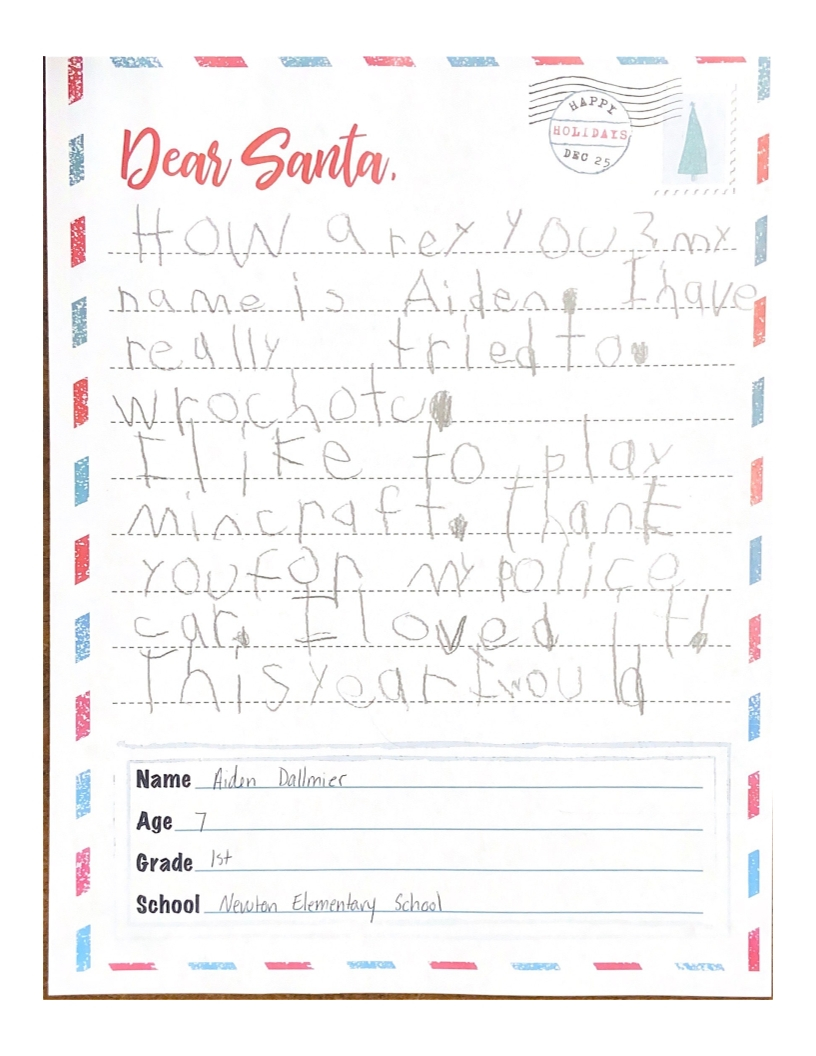 HAPPY
HOLIDAYS
DEC 25
Dear Santa,
HOW a rey YOU? my
name is Aiden. I have
really tried to.
wrochotu
I like to play
mincraft. Thank
you for my police
car. I loved it!
This year I would
Name Aiden Dallmier
Age 7
Grade 1st
School Newton Elementary School